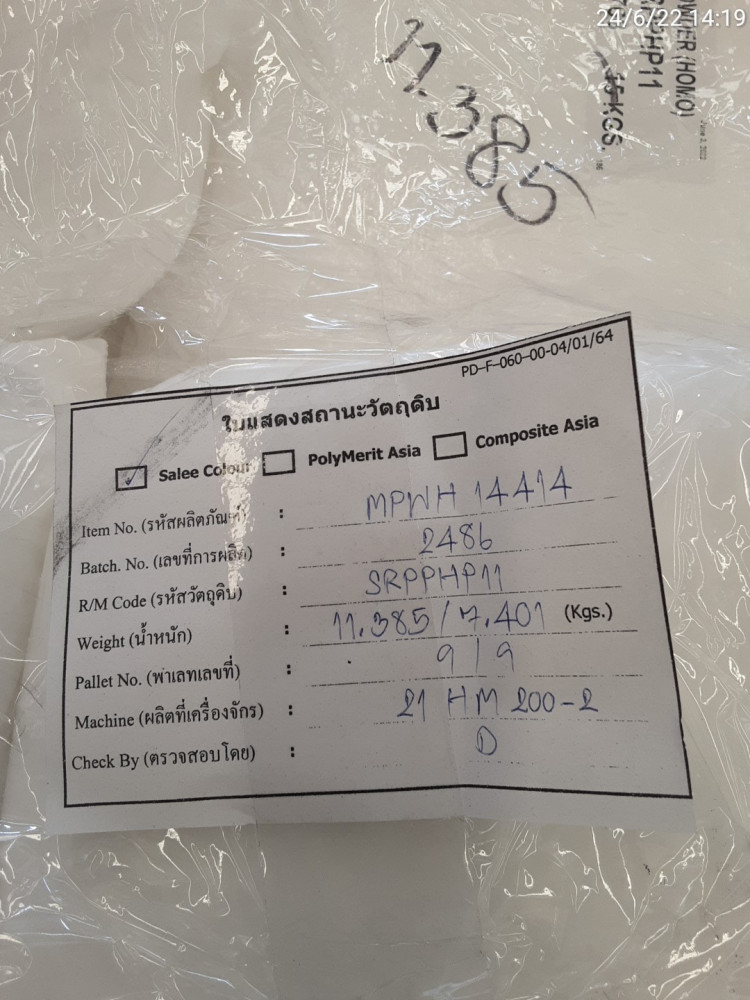 24/6/22 14:19
(HOMO)
11.385
PD-F-060-00-04/01/64
ใบแสดงสถานะวัตถุดิบ
Salee Colour PolyMerit Asia Composite Asia
Item No. (รหัสผลิตภัณฑ์) : MPWH 14414
Batch. No. (เลขที่การผลิต) : 2486
R/M Code (รหัสวัตถุดิบ) : SRPPHP11
Weight (น้ำหนัก) : 11.385/7.401 (Kgs.)
Pallet No. (พาเลทเลขที่) : 9/9
Machine (ผลิตที่เครื่องจักร) : 21 HM 200-2
Check By (ตรวจสอบโดย) : D